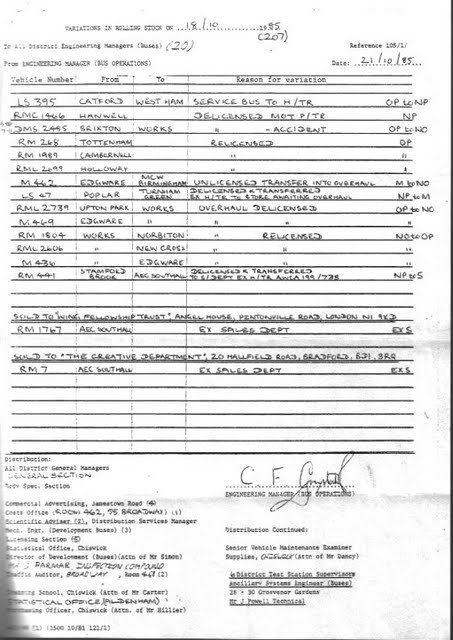 VARIATIONS IN ROLLING STOCK ON 18/10 1985
(207)
To All District Engineering Managers (Buses) (20) Reference 105/1/
From ENGINEERING MANAGER (BUS OPERATIONS) Date: 21/10/85
Vehicle Number From To Reason for variation
LS 395 CATFORD WEST HAM SERVICE BUS TO H/TR OP to NP
RMC 1466 HANWELL DELICENSED MOT P/TR NP
DMS 2485 BRIXTON WORKS " - ACCIDENT OP to NO
RM 268 TOTTENHAM RELICENSED OP
RM 1989 CAMBERWELL " "
RML 2699 HOLLOWAY " "
M 462 EDGWARE MCW BIRMINGHAM UNLICENSED TRANSFER INTO OVERHAUL M to NO
LS 47 POPLAR TURNHAM GREEN DELICENSED & TRANSFERRED EX H/TR TO STORE AWAITING OVERHAUL NP to M
RML 2739 UPTON PARK WORKS OVERHAUL DELICENSED OP to NO
M 469 EDGWARE " " " "
RM 1804 WORKS NORBITON " RELICENSED NO to OP
RML 2606 " NEW CROSS " " "
M 436 " EDGWARE " " "
RM 441 STAMFORD BROOK AEC SOUTHALL DELICENSED & TRANSFERRED TO S/DEPT EX H/TR AWCA 199/738 NP to S
SOLD TO "WING FELLOWSHIP TRUST", ANGEL HOUSE, PENTONVILLE ROAD, LONDON N1 9XD
RM 1767 AEC SOUTHALL EX SALES DEPT EX S
SOLD TO "THE CREATIVE DEPARTMENT", 20 HALLFIELD ROAD, BRADFORD, BD1 3RQ
RM 7 AEC SOUTHALL EX SALES DEPT EX S
Distribution:
All District General Managers
GENERAL SECTION
Body Spec. Section
C F
ENGINEERING MANAGER (BUS OPERATIONS)
Commercial Advertising, Jamestown Road (4)
Costs Office (ROOM 462, 55 BROADWAY) (1)
Scientific Adviser (2), Distribution Services Manager
Mech. Engr. (Development Buses) (3)
Licensing Section (5)
Statistical Office, Chiswick
Director of Development (Buses)(Attn of Mr Simon)
Mr J PARMAR INSPECTION COMPOUND
Traffic Auditor, BROADWAY, Room 461 (2)
Training School, Chiswick (Attn of Mr Carter)
STATISTICAL OFFICE (ALDENHAM)
Purchasing Officer, Chiswick (Attn. of Mr Hillier)
(1) (2500 10/81 121/1)
Distribution Continued:
Senior Vehicle Maintenance Examiner
Supplies, CHISWICK (Attn of Mr Dancy)
District Test Station Supervisors
Ancillary Systems Engineer (Buses)
28 - 30 Grosvenor Gardens
Mr J Powell Technical